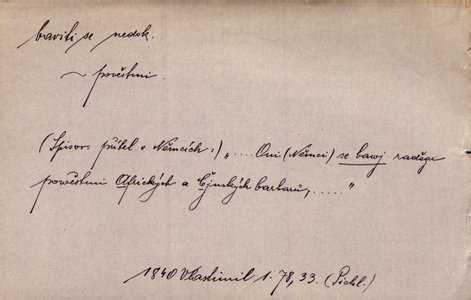 baviti se nedok.
~ pověstmi.
(Spisov. přítel o Němcích:) „.... Oni (Němci) se bawj raděgi
powěstmi Afrických a Čjnských barbarů, ....."
1840 Vlastimil 1. 78, 33. (Pichl.)